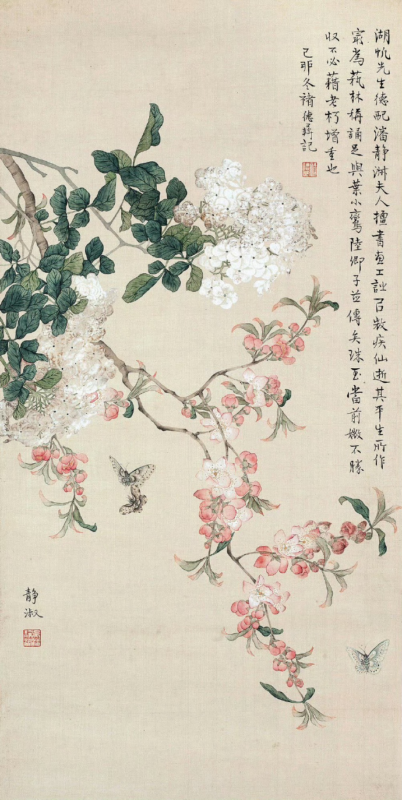 湖帆先生德配潘静淑夫人擅書画工詞召數疾仙逝其平生所作
寅為萟林稱誦足與葉小鸞陸卿子並傳矣珠玉當前嫩不勝
収不必藉老朽增重也
己卯冬褚德彝記
静淑